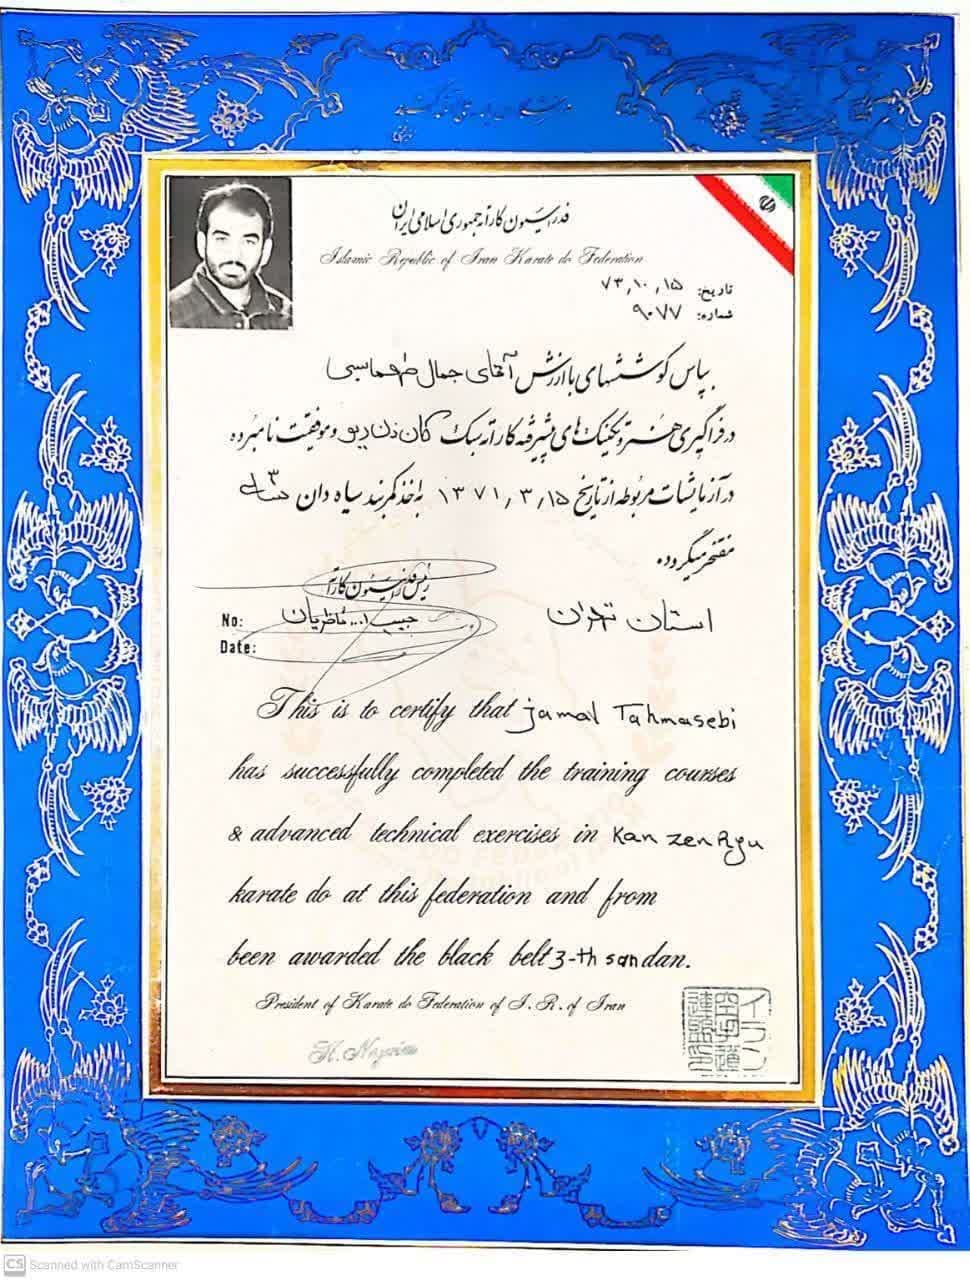 فدراسیون کاراته جمهوری اسلامی ایران
Islamic Republic of Iran Karate do Federation
تاریخ: ۷۳,۱۰,۱۵
شماره: ۹۰۷۷
بپاس کوششهای با ارزش آقای جمال طهماسبی
در فراگیری هنر و تکنیک های پیشرفته کاراته سبک کان ذن ریو و موفقیت نامبرده
در آزمایشات مربوطه از تاریخ ۱۳۷۱,۳,۱۵ به اخذ کمربند سیاه دان ۳
مفتخر میگردد.
رئیس فدراسیون کاراته
حبیب ا... ناظریان
استان تهران
No:
Date:
This is to certify that jamal Tahmasebi
has successfully completed the training courses
& advanced technical exercises in Kan zen Ryu
karate do at this federation and from
been awarded the black belt 3-th sandan.
President of Karate do Federation of I. R. of Iran
イラン
空手道
連盟印
CS Scanned with CamScanner